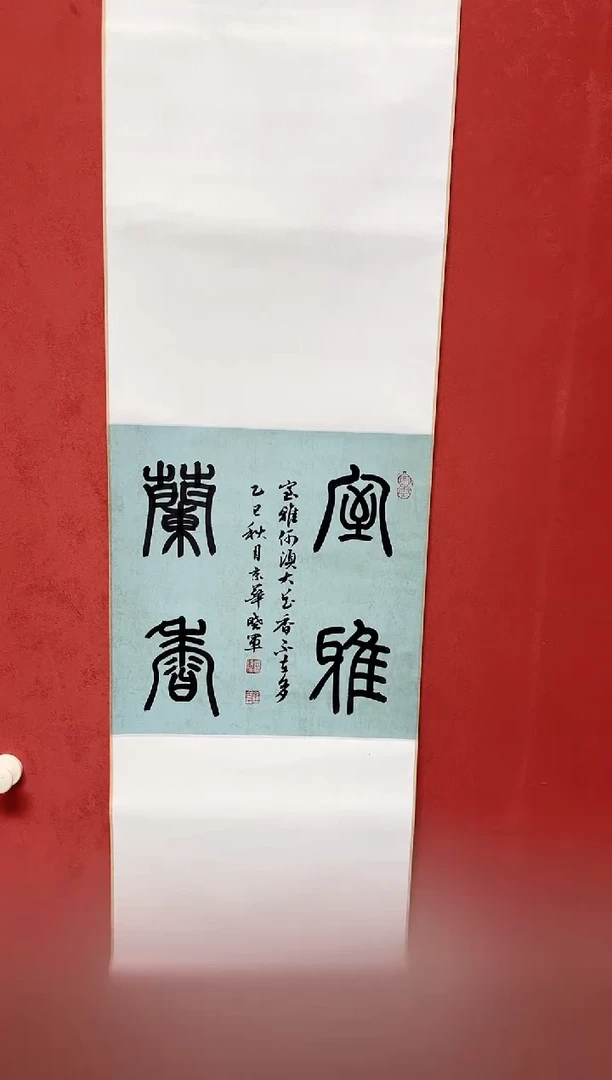 室雅
蘭香
室雅何須大花香不在多
乙巳秋月京華曉軍